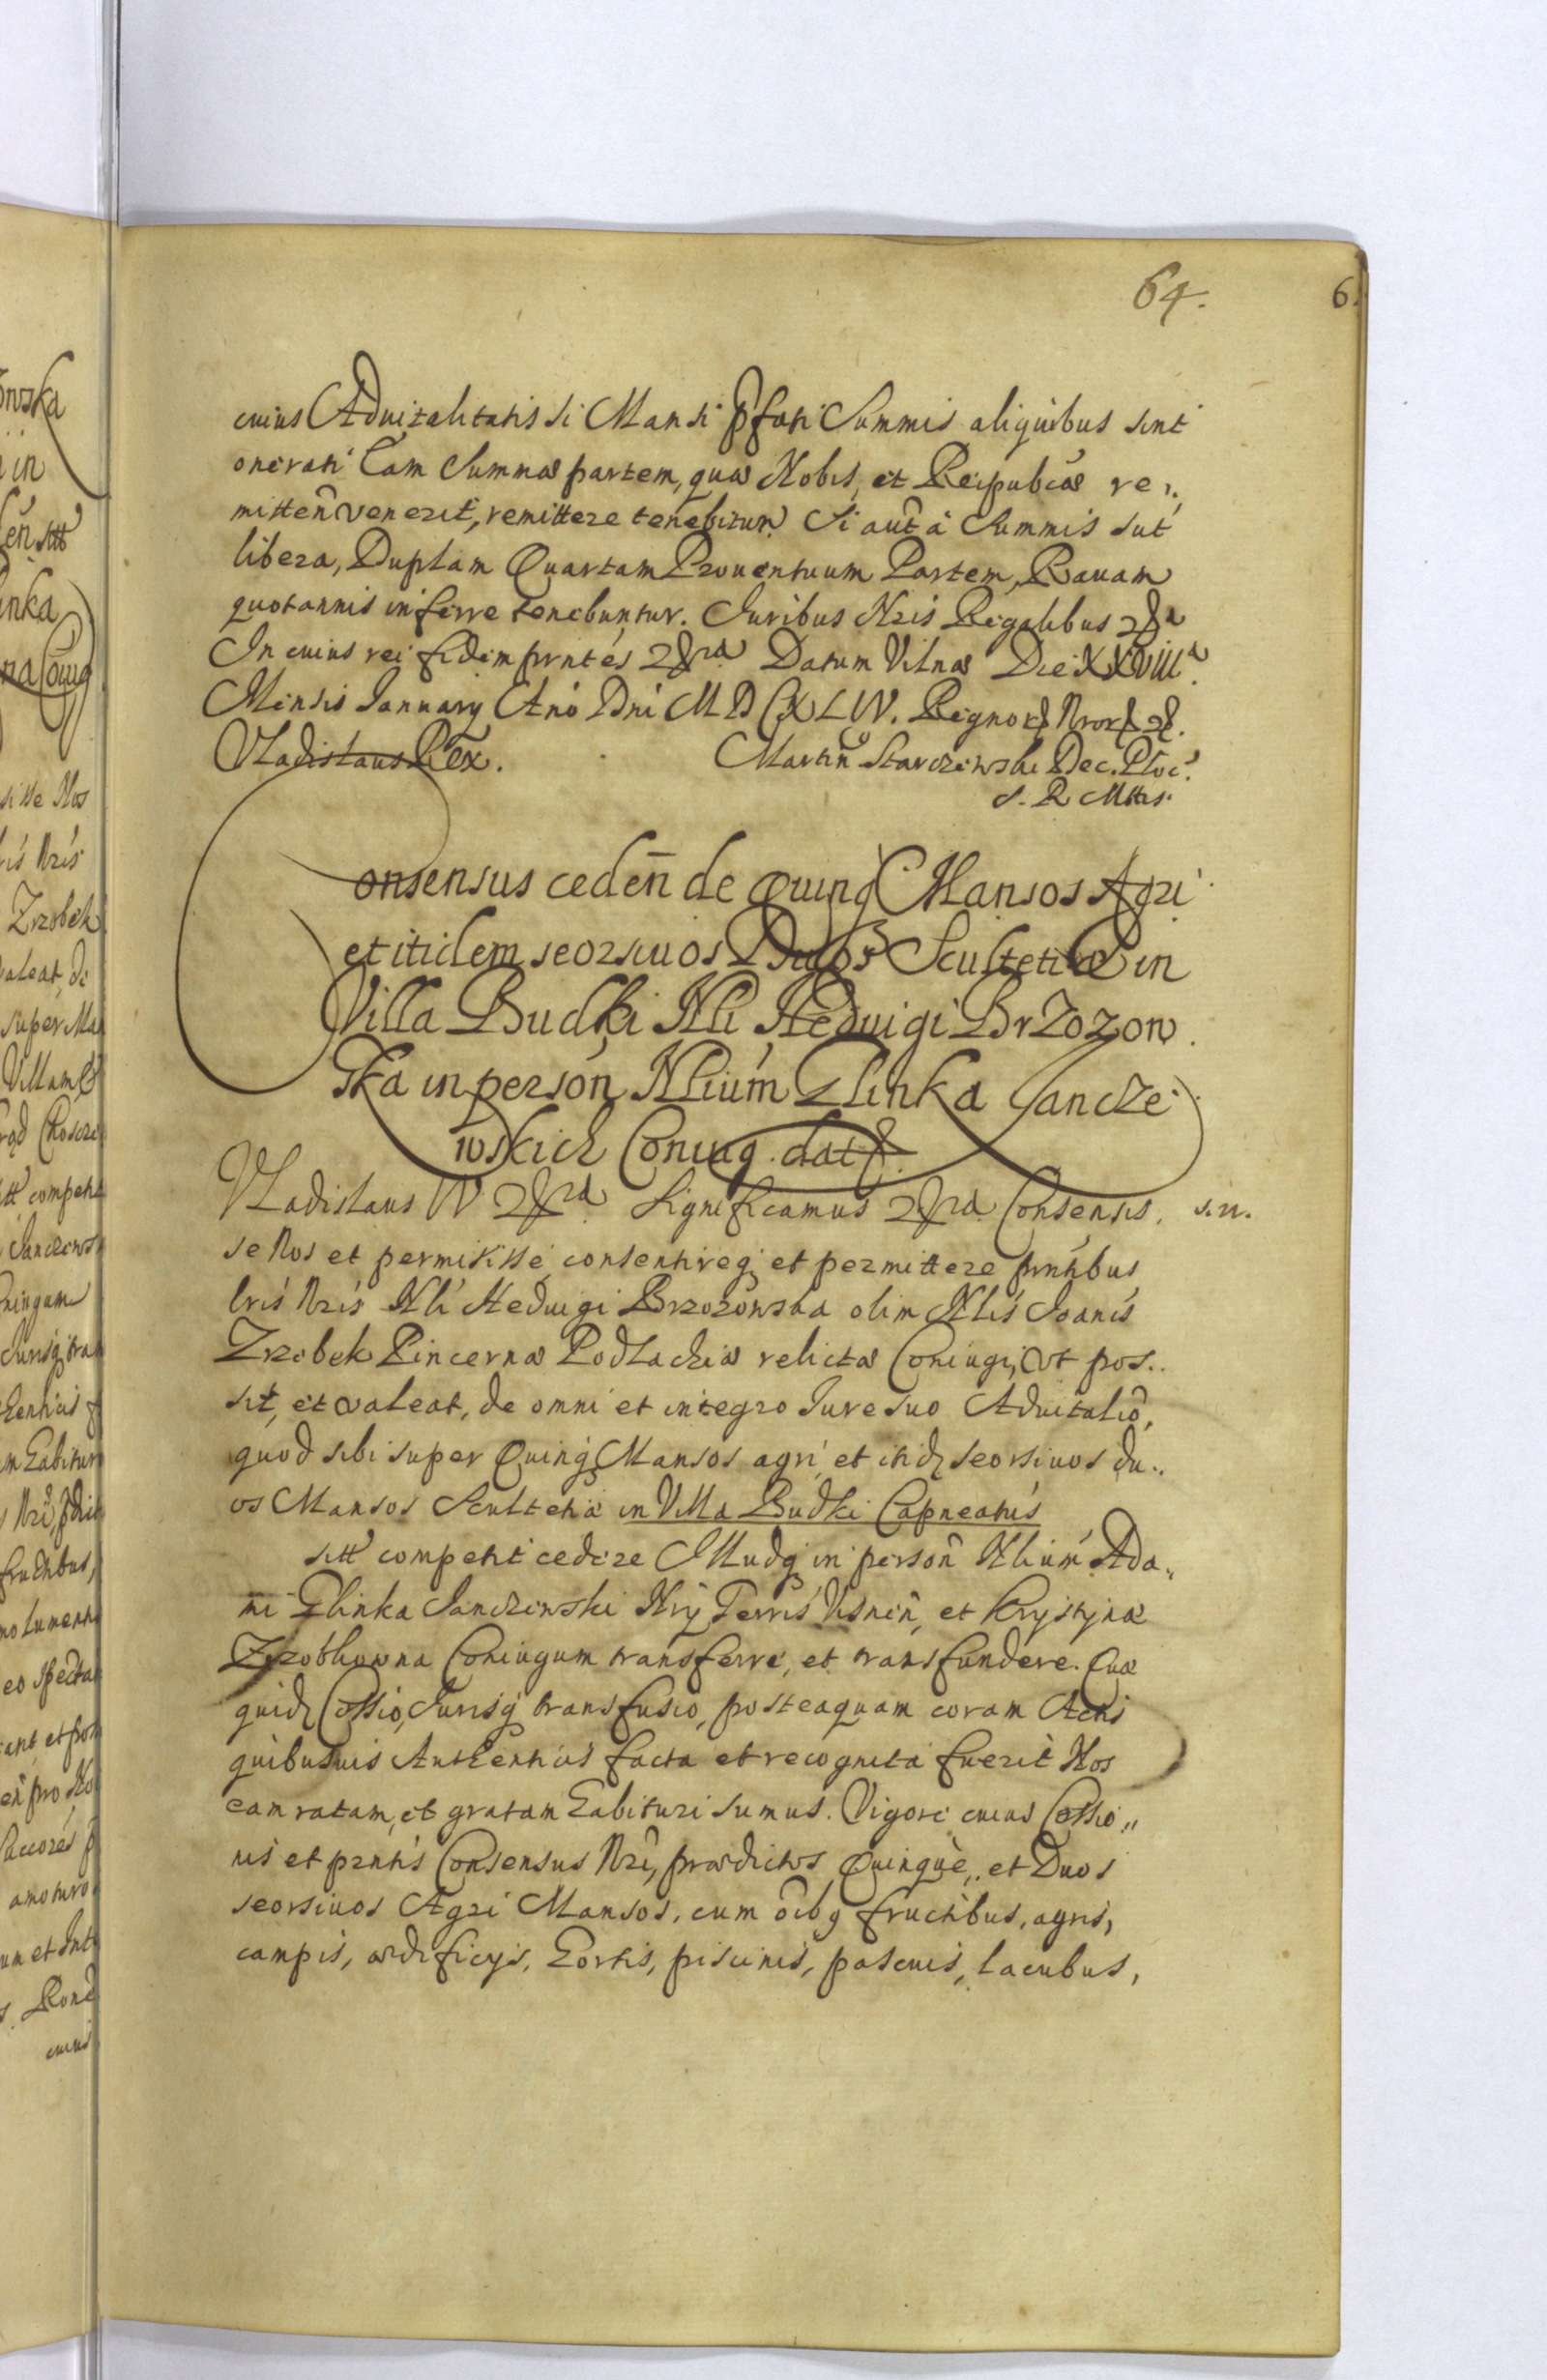 64.
cuius Aduitalitatis si Mansi pfati Summis aliquibus sint
onerati Eam Summæ partem, quæ Nobis, et Reipubcæ re
mitten venerit, remittere tenebitur. Si aut a Summis sut
libera, Duplam Quartam Prouentuum Partem, Rauam
quotannis inferre tenebuntur. Juribus Nris Regalibus
In cuius rei fidem prntes Datum Vilnæ Die XXVIII
Mensis January Ano Dni MDCXLIV. Regnor Nror
Vladislaus Rex. Martin Starczewski Dec. Ploc.
S. R Mttis.
Consensus ceden de Quinq Mansos Agri
et itidem seorsiuos Duos Scultetiæ in
Villa Budki Nli Heduigi Brzozow
ska in person Nlium Glinka Janczé
wskich Coniug. dat
Vladislaus IV Significamus Consensis. s.n.
se Nos et permisisse, consentireq et permittere prntibus
lris Nris Nli Heduigi Brzozowska olim Nlis Joanis
Zrzobek Pincernæ Podlachiæ relictæ Coniugi, Vt pos..
sit, et valeat, de omni et integro Jure suo Aduitalio,
quod sibi super Quinq Mansos agri, et itid seorsiuos du..
os Mansos Scultetia in Villa Budki Capneatus
sitt competit cedere Illudq in person Nlium Ada,,
mi Glinka Janczewski Nrij Terris Visnen, et Krystyna
Zrzobkowna Coniugum transferre, et transfundere. Quæ
quid Cessio, Jurisq transfusio, posteaquam coram Actis
quibusuis Authenticis facta et recognita fuerit Nos
eam ratam, et gratam habituri sumus. Vigore cuius Cessio,,
nis et prntis Consensus Nri, prædictos Quinque,, et Duos
seorsiuos Agri Mansos, cum oibq fructibus, agris,
campis, ædificijs, hortis, piscinis, pascuis, lacubus,